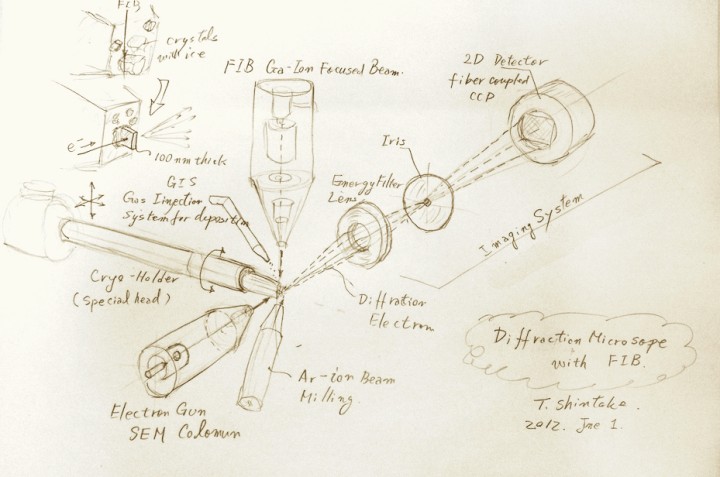 FIB
crystals
with ice
e⁻
100 nm thick
FIB Ga-Ion Focused Beam.
2D Detector
fiber coupled
CCP
Iris
Energy Filter
Lens
GIS
Gas Injection
System for deposition
Imaging System
Cryo-Holder
(Special head)
Diffration
Electron
Ar-ion Beam
Milling.
Electron Gun
SEM Colomun
Diffraction Microsope
with FIB.
T. Shintake.
2012. Jne 1.